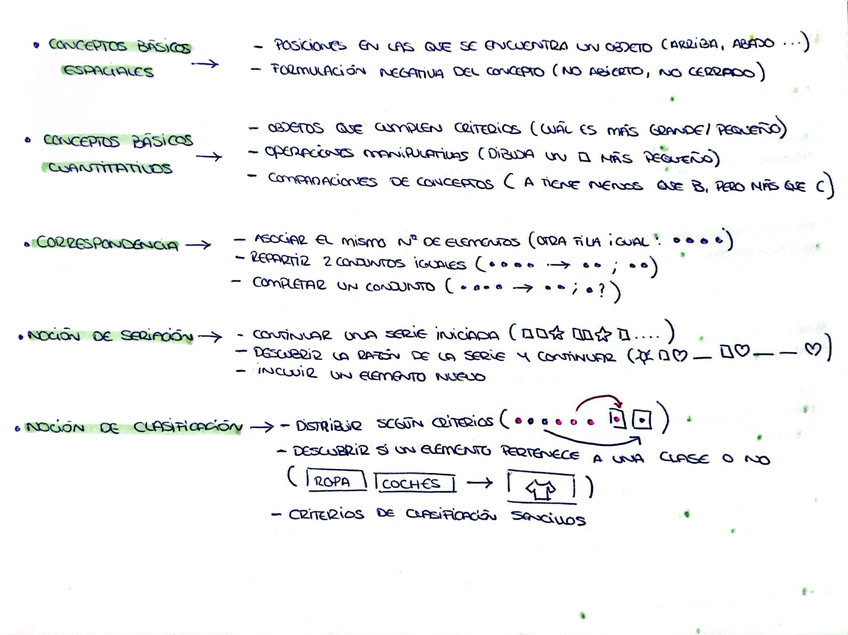 • CONCEPTOS BÁSICOS ESPACIALES → - POSICIONES EN LAS QUE SE ENCUENTRA UN OBJETO (ARRIBA, ABAJO ...)
- FORMULACIÓN NEGATIVA DEL CONCEPTO (NO ABIERTO, NO CERRADO)
• CONCEPTOS BÁSICOS CUANTITATIVOS → - OBJETOS QUE CUMPLEN CRITERIOS (CUÁL ES MÁS GRANDE/PEQUEÑO)
- OPERACIONES MANIPULATIVAS (DIBUJA UN □ MÁS PEQUEÑO)
- COMPARACIONES DE CONCEPTOS (A TIENE MENOS QUE B, PERO MÁS QUE C)
• CORRESPONDENCIA → - ASOCIAR EL MISMO Nº DE ELEMENTOS (OTRA FILA IGUAL: ••••)
- REPARTIR 2 CONJUNTOS IGUALES (•••• → ••; ••)
- COMPLETAR UN CONJUNTO (•••• → ••; •?)
• NOCIÓN DE SERIACIÓN → - CONTINUAR UNA SERIE INICIADA (□□☆ □□☆ □....)
- DESCUBRIR LA RAZÓN DE LA SERIE Y CONTINUAR (☆□♡_ □♡_ _ ♡)
- INCLUIR UN ELEMENTO NUEVO
• NOCIÓN DE CLASIFICACIÓN → - DISTRIBUIR SEGÚN CRITERIOS (•••••• ⊡ ⊡)
- DESCUBRIR SI UN ELEMENTO PERTENECE A UNA CLASE O NO
(ROPA COCHES → )
- CRITERIOS DE CLASIFICACIÓN SENCILLOS